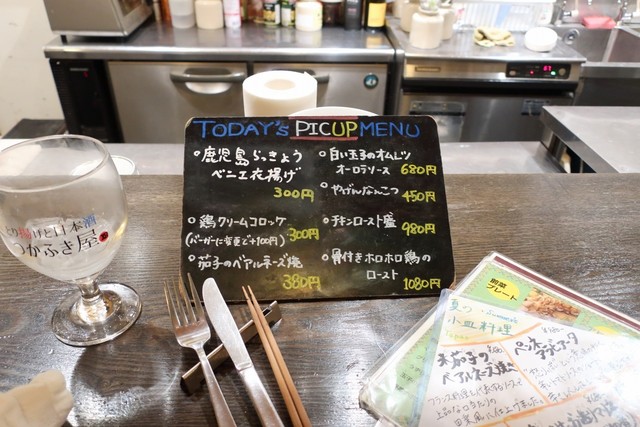 TODAY's PICUP MENU
鹿児島らっきょう
ベニエ衣揚げ
300円
鶏クリームコロッケ
(バーガーに変更で+100円) 300円
茄子のベアルネーズ焼
380円
白い玉子のオムレツ
オーロラソース 680円
やげんなんこつ 450円
チキンロースト盛 980円
骨付きホロホロ鶏の
ロースト 1080円
揚げと日本酒
つかふき屋
前菜
プレート
夏の
小皿料理
米茄子の
ベアルネーズ焼
ペンネ
アラビアータ